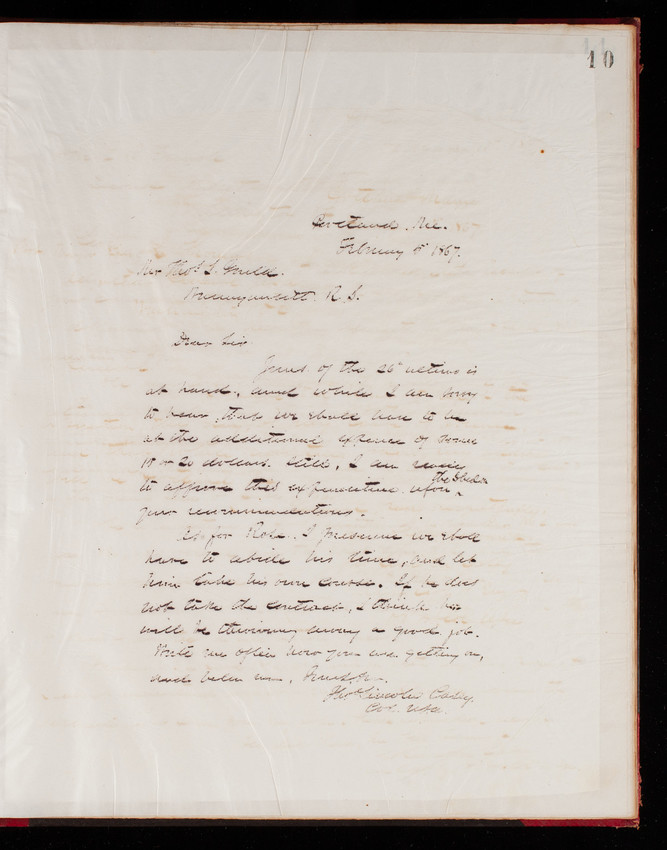 10
Portland, Me.
February 8th 1867.
Mr Thos. S.
Narragansett R. I.
Dear Sir
Yours of the 26" ultimo is
at hand, and while I am sorry
to hear, that we shall have to be
at the additional expense of some
18 or 20 dollars still, I am ready
to approve this expenditure upon
your recommendations.
As for Rose, I presume we shall
have to abide his time, and let
him take his own course. If he does
not take the contract, I think he
will be throwing away a good job.
Write me often how you are getting on,
and believe me, Yours &c.
Thos. Lincoln Casey
Col. USA.